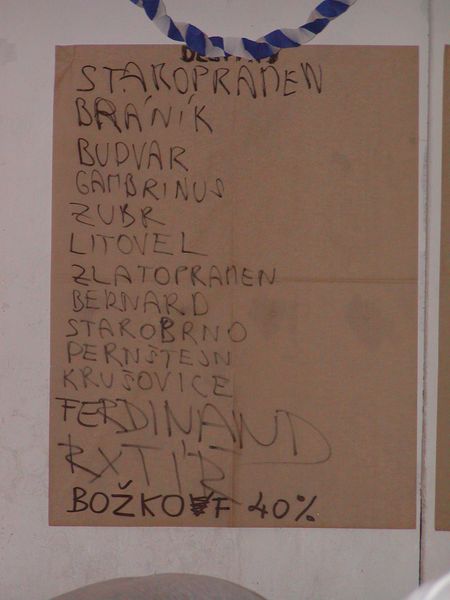 STAROPRAMEN
BRÁNÍK
BUDVAR
GAMBRINUS
ZUBR
LITOVEL
ZLATOPRAMEN
BERNARD
STAROBRNO
PERNŠTEJN
KRUŠOVICE
FERDINAND
BOŽKOF 40%